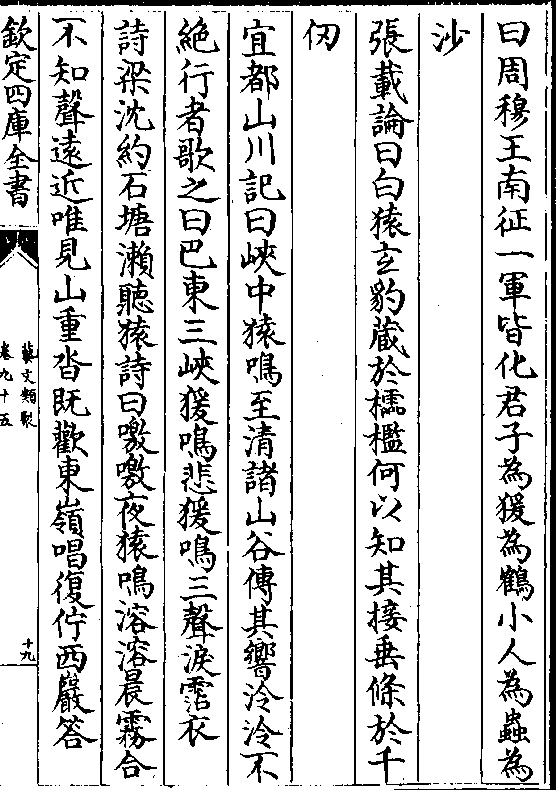 曰周穆王南征一軍皆化君子為猨為鶴小人為蟲為
沙
張載論曰白猿玄豹藏於櫺檻何以知其接垂條於千
仞
宜都山川記曰峽中猿鳴至清諸山谷傳其響泠泠不
絶行者歌之曰巴東三峽猨鳴悲猨鳴三聲淚霑衣
詩梁沈約石塘瀨聽猿詩曰噭噭夜猿鳴溶溶晨霧合
不知聲遠近唯見山重沓既歡東嶺唱復佇西巖答
欽定四庫全書
藝文類聚
卷九十五
十九